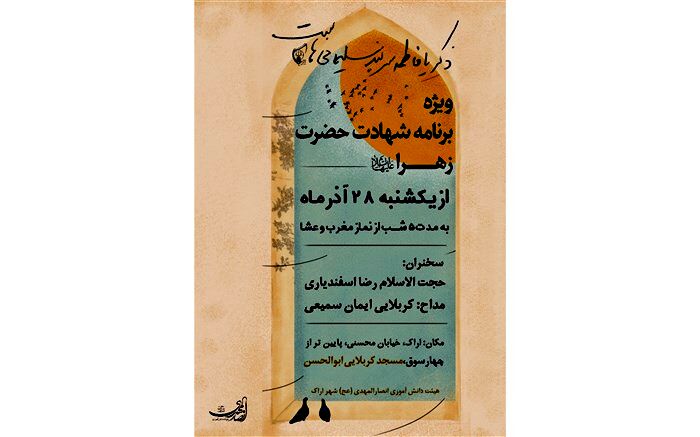 ذکر یا فاطمه سربند سلیمانی هاست
ویژه
برنامه شهادت حضرت
زهرا
از یکشنبه ۲۸ آذر ماه
به مدت ۵ شب از نماز مغرب و عشا
سخنران:
حجت الاسلام رضا اسفندیاری
مداح: کربلایی ایمان سمیعی
مکان: اراک، خیابان محسنی، پایین تر از
چهارسوق، مسجد کربلایی ابوالحسن
هیئت دانش آموزی انصارالمهدی (عج) شهر اراک